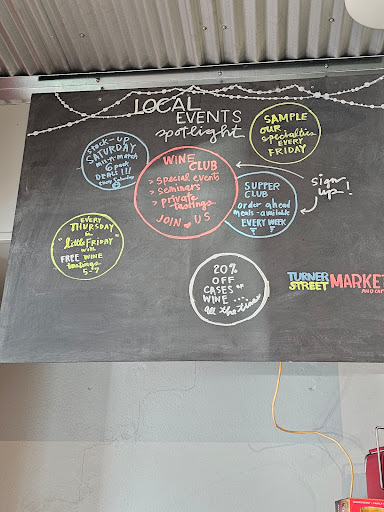 LOCAL
EVENTS
spotlight
SAMPLE
OUR
specialties
EVERY
FRIDAY
stock-up
SATURDAY
mix-n-match
6 pack
DEALS!!!
Every Saturday
WINE
CLUB
> special events
> seminars
> private
tastings
JOIN US
SUPPER
CLUB
order ahead
meals-available
EVERY WEEK
sign
up!
EVERY
THURSDAY
is
"little FRIDAY"
with
FREE WINE
tastings
5-7
20%
OFF
CASES OF
WINE ...
all the time
TURNER
STREET
MARKET